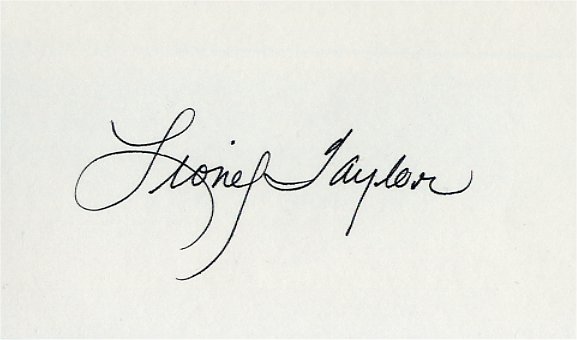 Lionel Taylor